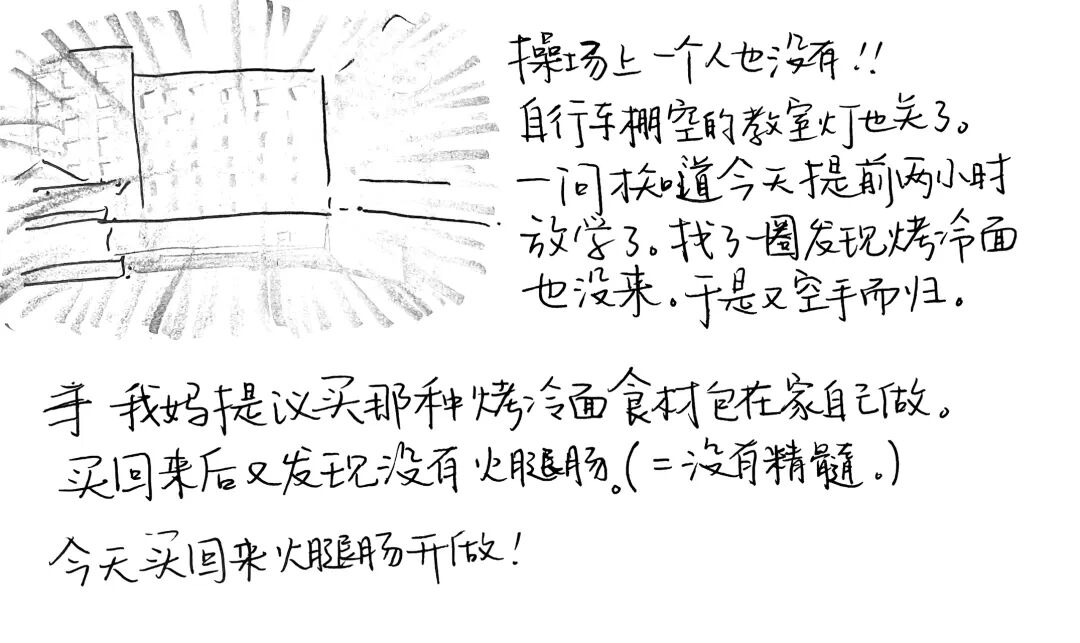 操场上一个人也没有!!
自行车棚空的教室灯也关了。
一问才知道今天提前两小时
放学了。找了一圈发现烤冷面
也没来。于是又空手而归。
我妈提议买那种烤冷面食材包在家自己做。
买回来后又发现没有火腿肠。(=没有精髓。)
今天买回来火腿肠开做!